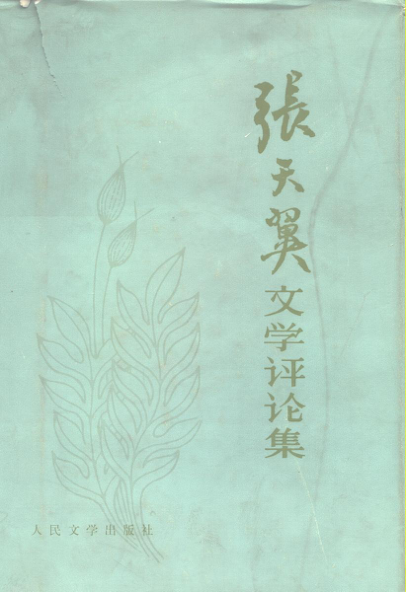 張天翼
文学评论集
人民文学出版社